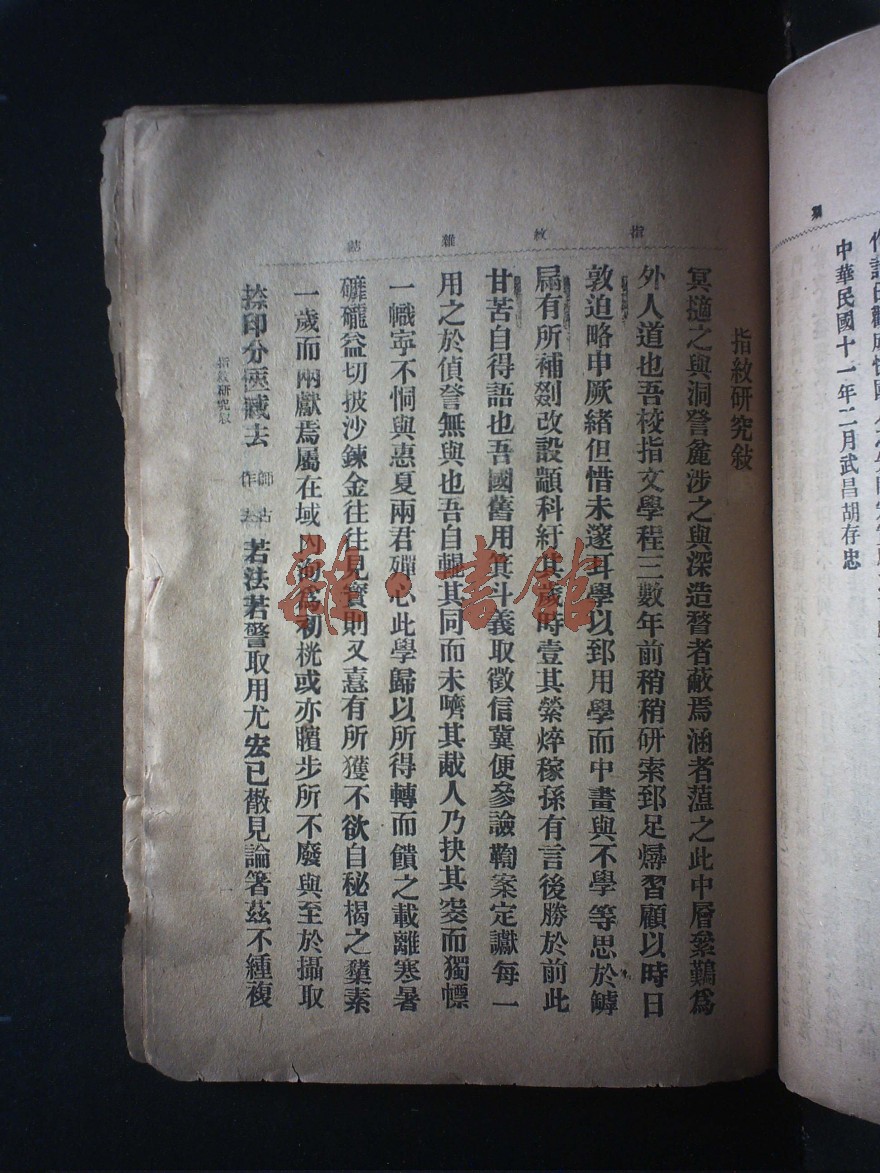 指紋雜誌
指紋研究敍
冥擿之與洞詧麁涉之與深造瞀者蔽焉涵者蕰之此中層絫鷬爲
外人道也吾校指文學程三數年前稍稍研索郅足燖習顧以時日
敦迫略申厥緒但惜未邃耳學以郅用學而中畫與不學等思於罅
扄有所補劉改設顓科紆其歲時壹其縈焠稼孫有言後勝於前此
甘苦自得語也吾國舊用箕斗義取徵信冀便參譣鞫案定讞每一
用之於偵詧無與也吾自輥其同而未嚌其胾人乃抉其窔而獨幖
一幟寧不恫與惠夏兩君殫心此學歸以所得轉而饋之載離寒暑
礲益切披沙鍊金往往見寶則又憙有所獲不欲自秘楬之糞素
一歲而兩獻焉屬在域內洵爲初桄或亦矉步所不廢與至於攝取
捺印分匧藏去
師古
作
若法若警取用尤宏已散見論箸茲不緟複
指紋研究敍
一
中華民國十一年二月武昌胡存忠
雜·書館